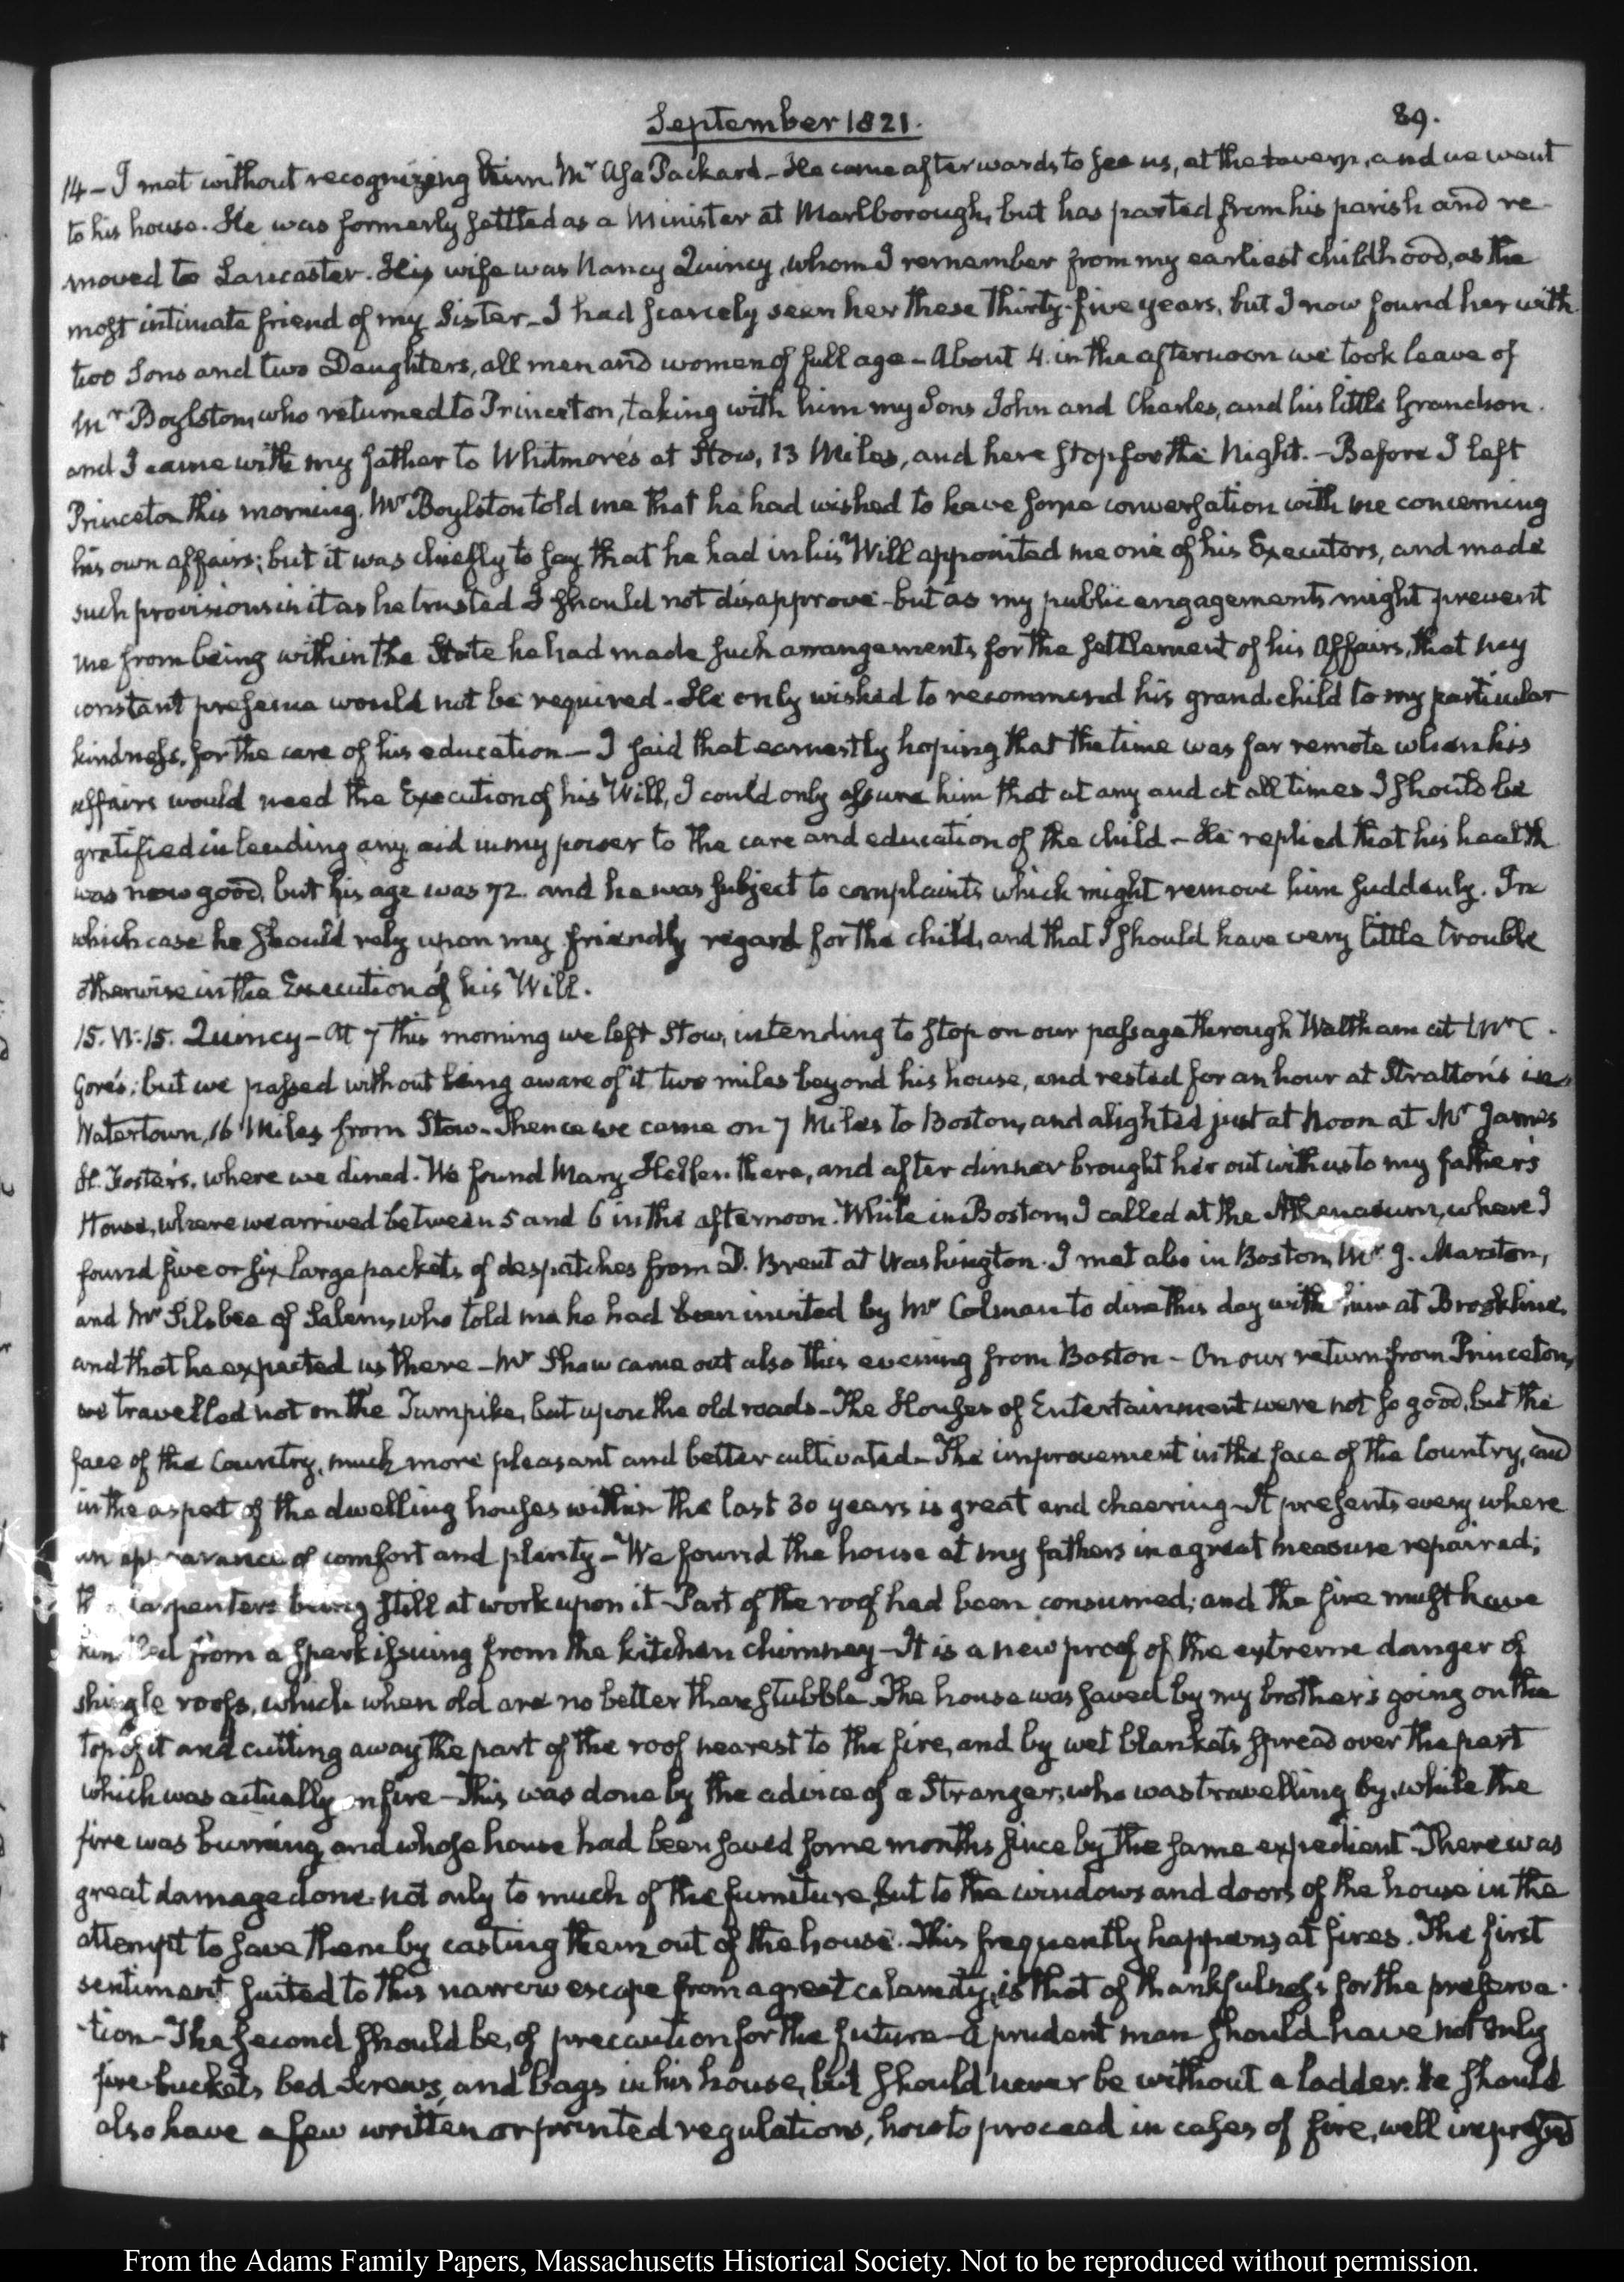 September 1821.
89.
14 - I met without recognizing him Mr Asa Packard - He came afterwards to see us, at the tavern, and we went
to his house. He was formerly settled as a Minister at Marlborough, but has parted from his parish and re-
moved to Lancaster. His wife was Nancy Quincy, whom I remember from my earliest childhood, as the
most intimate friend of my Sister - I had scarcely seen her these thirty-five years, but I now found her with
two Sons and two Daughters, all men and women of full age - About 4. in the afternoon we took leave of
Mr Boylston, who returned to Princeton, taking with him my Sons John and Charles, and his little Grandson.
and I came with my father to Whitmore's at Stow, 13 Miles, and here stop for the Night. - Before I left
Princeton this morning, Mr Boylston told me that he had wished to have some conversation with me concerning
his own affairs; but it was chiefly to say that he had in his Will appointed me one of his Executors, and made
such provisions in it as he trusted I should not disapprove - but as my public engagements might prevent
me from being within the State he had made such arrangements for the settlement of his Affairs, that my
constant presence would not be required. He only wished to recommend his grand-child to my particular
kindness, for the care of his education - I said that earnestly hoping that the time was far remote when his
affairs would need the Execution of his Will, I could only assure him that at any and at all times I should be
gratified in lending any aid in my power to the care and education of the child - He replied that his health
was now good, but his age was 72. and he was subject to complaints which might remove him suddenly. In
which case he should rely upon my friendly regard for the child, and that I should have very little trouble
otherwise in the Execution of his Will.
15. VI:15. Quincy - At 7 this morning we left Stow, intending to stop on our passage through Waltham at Mr C.
Gore's; but we passed without being aware of it two miles beyond his house, and rested for an hour at Stratton's in
Watertown, 16 Miles from Stow. Thence we came on 7 Miles to Boston, and alighted just at Noon at Mr James
H. Foster's, where we dined. We found Mary Hellen there, and after dinner brought her out with us to my father's
House, where we arrived between 5 and 6 in the afternoon. While in Boston, I called at the Athenaeum, where I
found five or six large packets of despatches from D. Brent at Washington. I met also in Boston, Mr J. Marston,
and Mr Silsbee of Salem, who told me he had been invited by Mr Colman to dine this day with him at Brookline,
and that he expected us there - Mr Shaw came out also this evening from Boston - On our return from Princeton,
we travelled not on the Turnpike, but upon the old roads - The Houses of Entertainment were not so good, but the
face of the Country, much more pleasant and better cultivated - The improvement in the face of the Country, and
in the aspect of the dwelling houses within the last 30 years is great and cheering - It presents every where
an appearance of comfort and plenty - We found the house at my fathers in a great measure repaired;
the carpenters being still at work upon it - Part of the roof had been consumed; and the fire must have
kindled from a spark issuing from the kitchen chimney - It is a new proof of the extreme danger of
shingle roofs, which when old are no better than stubble. The house was saved by my brother's going on the
top of it and cutting away the part of the roof nearest to the fire, and by wet blankets spread over the part
which was actually on fire - This was done by the advice of a Stranger, who was travelling by, while the
fire was burning, and whose house had been saved some months since by the same expedient - There was
great damage done not only to much of the furniture, but to the windows and doors of the house in the
attempt to save them by casting them out of the house. This frequently happens at fires. The first
sentiment suited to this narrow escape from a great calamity, is that of thankfulness for the preserva-
-tion - The second should be, of precaution for the future - A prudent man should have not only
fire-buckets, bed screws, and bags in his house, but should never be without a ladder. He should
also have a few written or printed regulations, how to proceed in cases of fire, well impressed
From the Adams Family Papers, Massachusetts Historical Society. Not to be reproduced without permission.